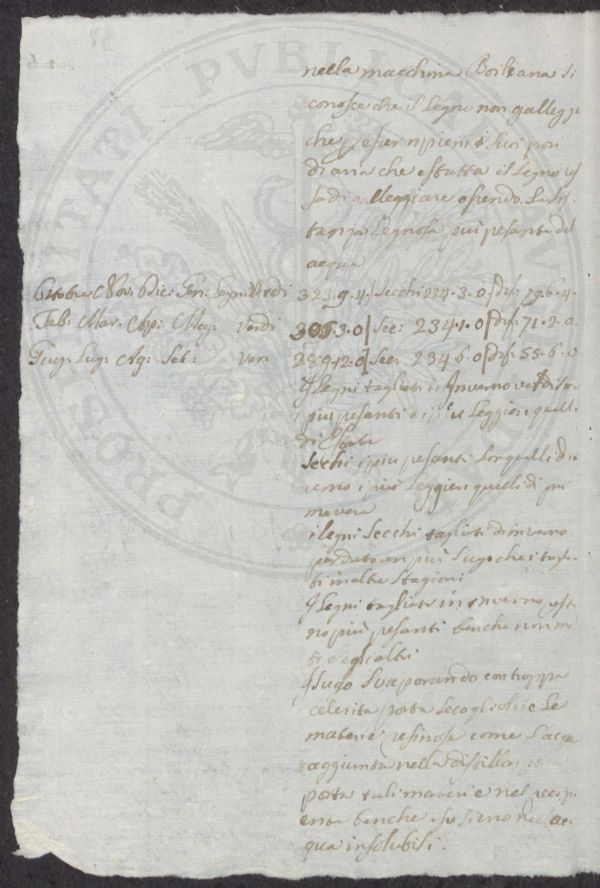 nella macchina Boileana si
conosce che il Legno non gallegg
che p esser ripieni i suoi pori
di aria che estratta il Legno
di galleggiare essendo La
tanza Legnosa più pesante del
acqua
Ottobre Nov. Dic: Gn: Legni Verdi 323.9.4. Secchi 224.3.0 Dif: 79.6.4.
Feb: Mar. Ap: Mag: verdi 305 3.0 Sec: 234.1.0 Dif: 71.2.0.
Giug: Lug: Ag: Set: ver: 289.12.0 Sec. 234 6.0 Dif: 55.6.0
I Legni tagliati in Inverno verdi son
i più pesanti e i più Leggieri quelli
di Estate
Secchi i più pesanti son quelli di in
verno i più Leggieri quelli di pri
mavera
i Legni Secchi tagliati d inverno
perduto an più Sugo che i tagl
ti in altre Stagioni
I Legni tagliati in inverno rest
no più pesanti benche
ti degli altri
Il Sugo Svaporando con troppa
celerita porta Seco gli olii e Le
materie resinose come L'acqua
aggiunta nella distilla
porta tali materie nel recipi
ente benche sieno
qua insolubili.
PROSPERITATI PUBLICAE